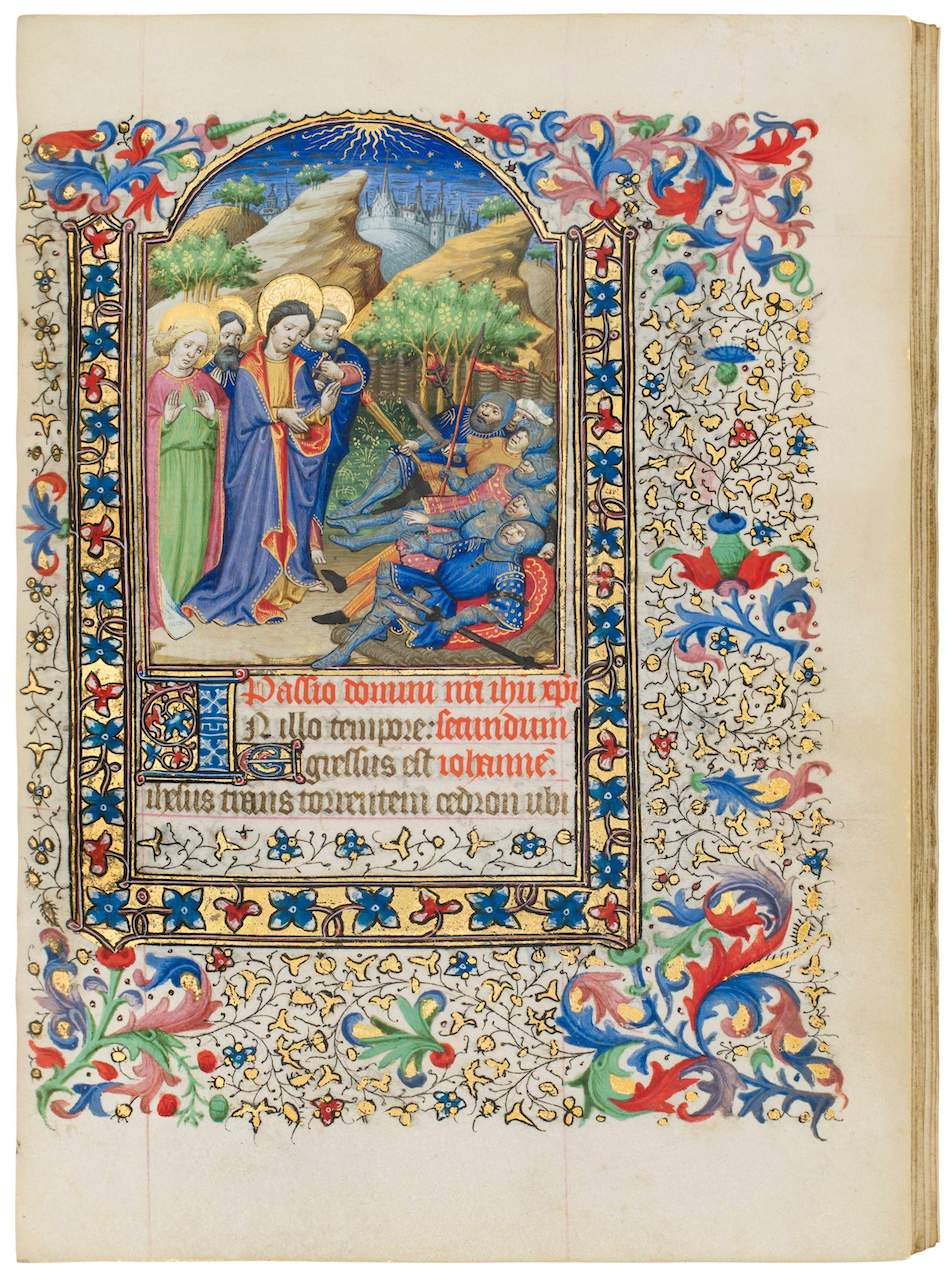 Passio domini nr̃i ihũ xp̃i
IN illo tempore: secundum
Egressus est iohannẽ.
ihesus trans torrentem cedron ubi